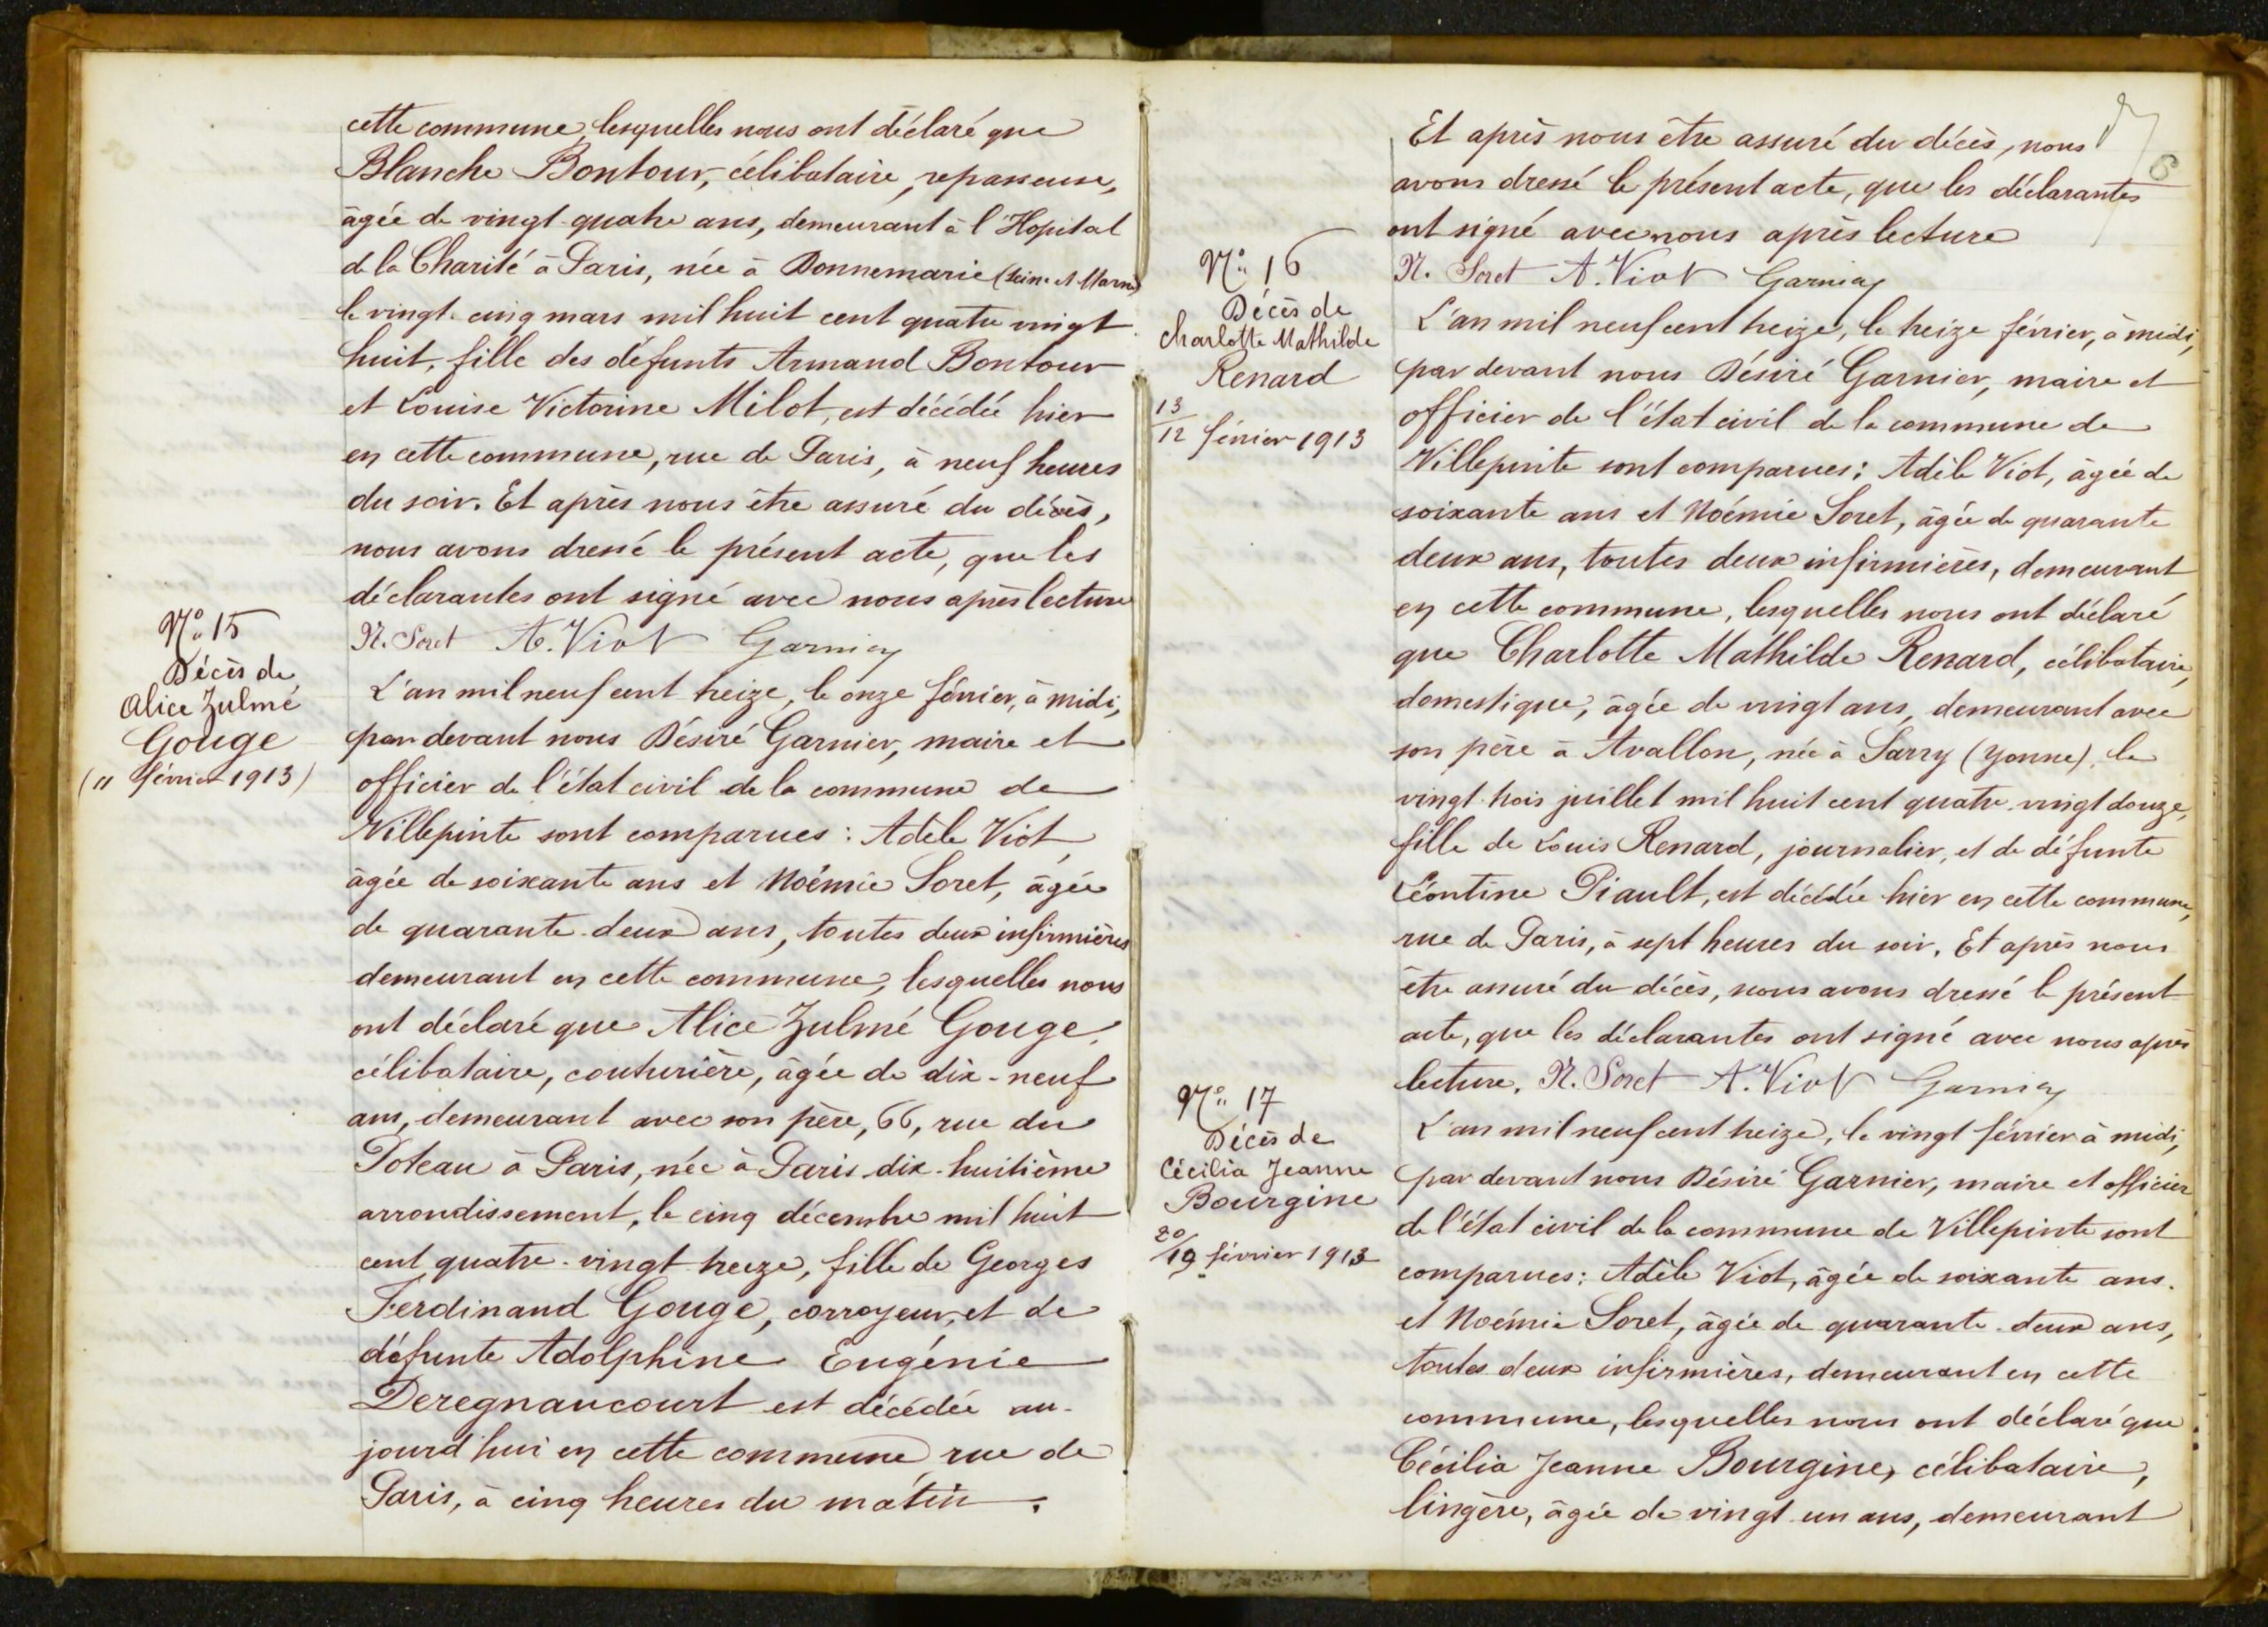 cette commune, lesquelles nous ont déclaré que
Blanche Bontour, célibataire, repasseuse,
âgée de vingt-quatre ans, demeurant à l'Hopital
de la Charité à Paris, née à Donnemarie (Seine et Marne)
le vingt-cinq mars mil huit cent quatre vingt
huit, fille des défunts Armand Bontour
et Louise Victorine Milot, est décédée hier
en cette commune, rue de Paris, à neuf heures
du soir. Et après nous être assuré du décès,
nous avons dressé le présent acte, que les
déclarantes ont signé avec nous après lecture
N. Soret A. Viot Garnier
N° 15
Décès de
Alice Zulmé
Gouge
(11 février 1913)
L'an mil neuf cent treize, le onze février, à midi,
par devant nous Désiré Garnier, maire et
officier de l'état civil de la commune de
Villepinte sont comparues : Adèle Viot,
âgée de soixante ans et Noémie Soret, âgée
de quarante-deux ans, toutes deux infirmières
demeurant en cette commune, lesquelles nous
ont déclaré que Alice Zulmé Gouge,
célibataire, couturière, âgée de dix-neuf
ans, demeurant avec son père, 66, rue du
Poteau à Paris, née à Paris dix-huitième
arrondissement, le cinq décembre mil huit
cent quatre-vingt treize, fille de Georges
Ferdinand Gouge, corroyeur, et de
défunte Adolphine Eugénie
Deregnaucourt est décédée au-
jourd'hui en cette commune rue de
Paris, à cinq heures du matin.
6
Et après nous être assuré du décès, nous
avons dressé le présent acte, que les déclarantes
ont signé avec nous après lecture
N. Soret A. Viot Garnier
N° 16
Décès de
Charlotte Mathilde
Renard
13/12 février 1913
L'an mil neuf cent treize, le treize février, à midi,
par devant nous Désiré Garnier, maire et
officier de l'état civil de la commune de
Villepinte sont comparues : Adèle Viot, âgée de
soixante ans et Noémie Soret, âgée de quarante
deux ans, toutes deux infirmières, demeurant
en cette commune, lesquelles nous ont déclaré
que Charlotte Mathilde Renard, célibataire,
domestique, âgée de vingt ans, demeurant avec
son père à Avallon, née à Sarry (Yonne), le
vingt-trois juillet mil huit cent quatre-vingt douze,
fille de Louis Renard, journalier, et de défunte
Léontine Piault, est décédée hier en cette commune,
rue de Paris, à sept heures du soir. Et après nous
être assuré du décès, nous avons dressé le présent
acte, que les déclarantes ont signé avec nous après
lecture. N. Soret A. Viot Garnier
N° 17
Décès de
Cécilia Jeanne
Bourgine
20/19 février 1913
L'an mil neuf cent treize, le vingt février à midi,
par devant nous Désiré Garnier, maire et officier
de l'état civil de la commune de Villepinte sont
comparues : Adèle Viot, âgée de soixante ans.
et Noémie Soret, âgée de quarante-deux ans,
toutes deux infirmières, demeurant en cette
commune, lesquelles nous ont déclaré que
Cécilia Jeanne Bourgine, célibataire,
lingère, âgée de vingt un ans, demeurant